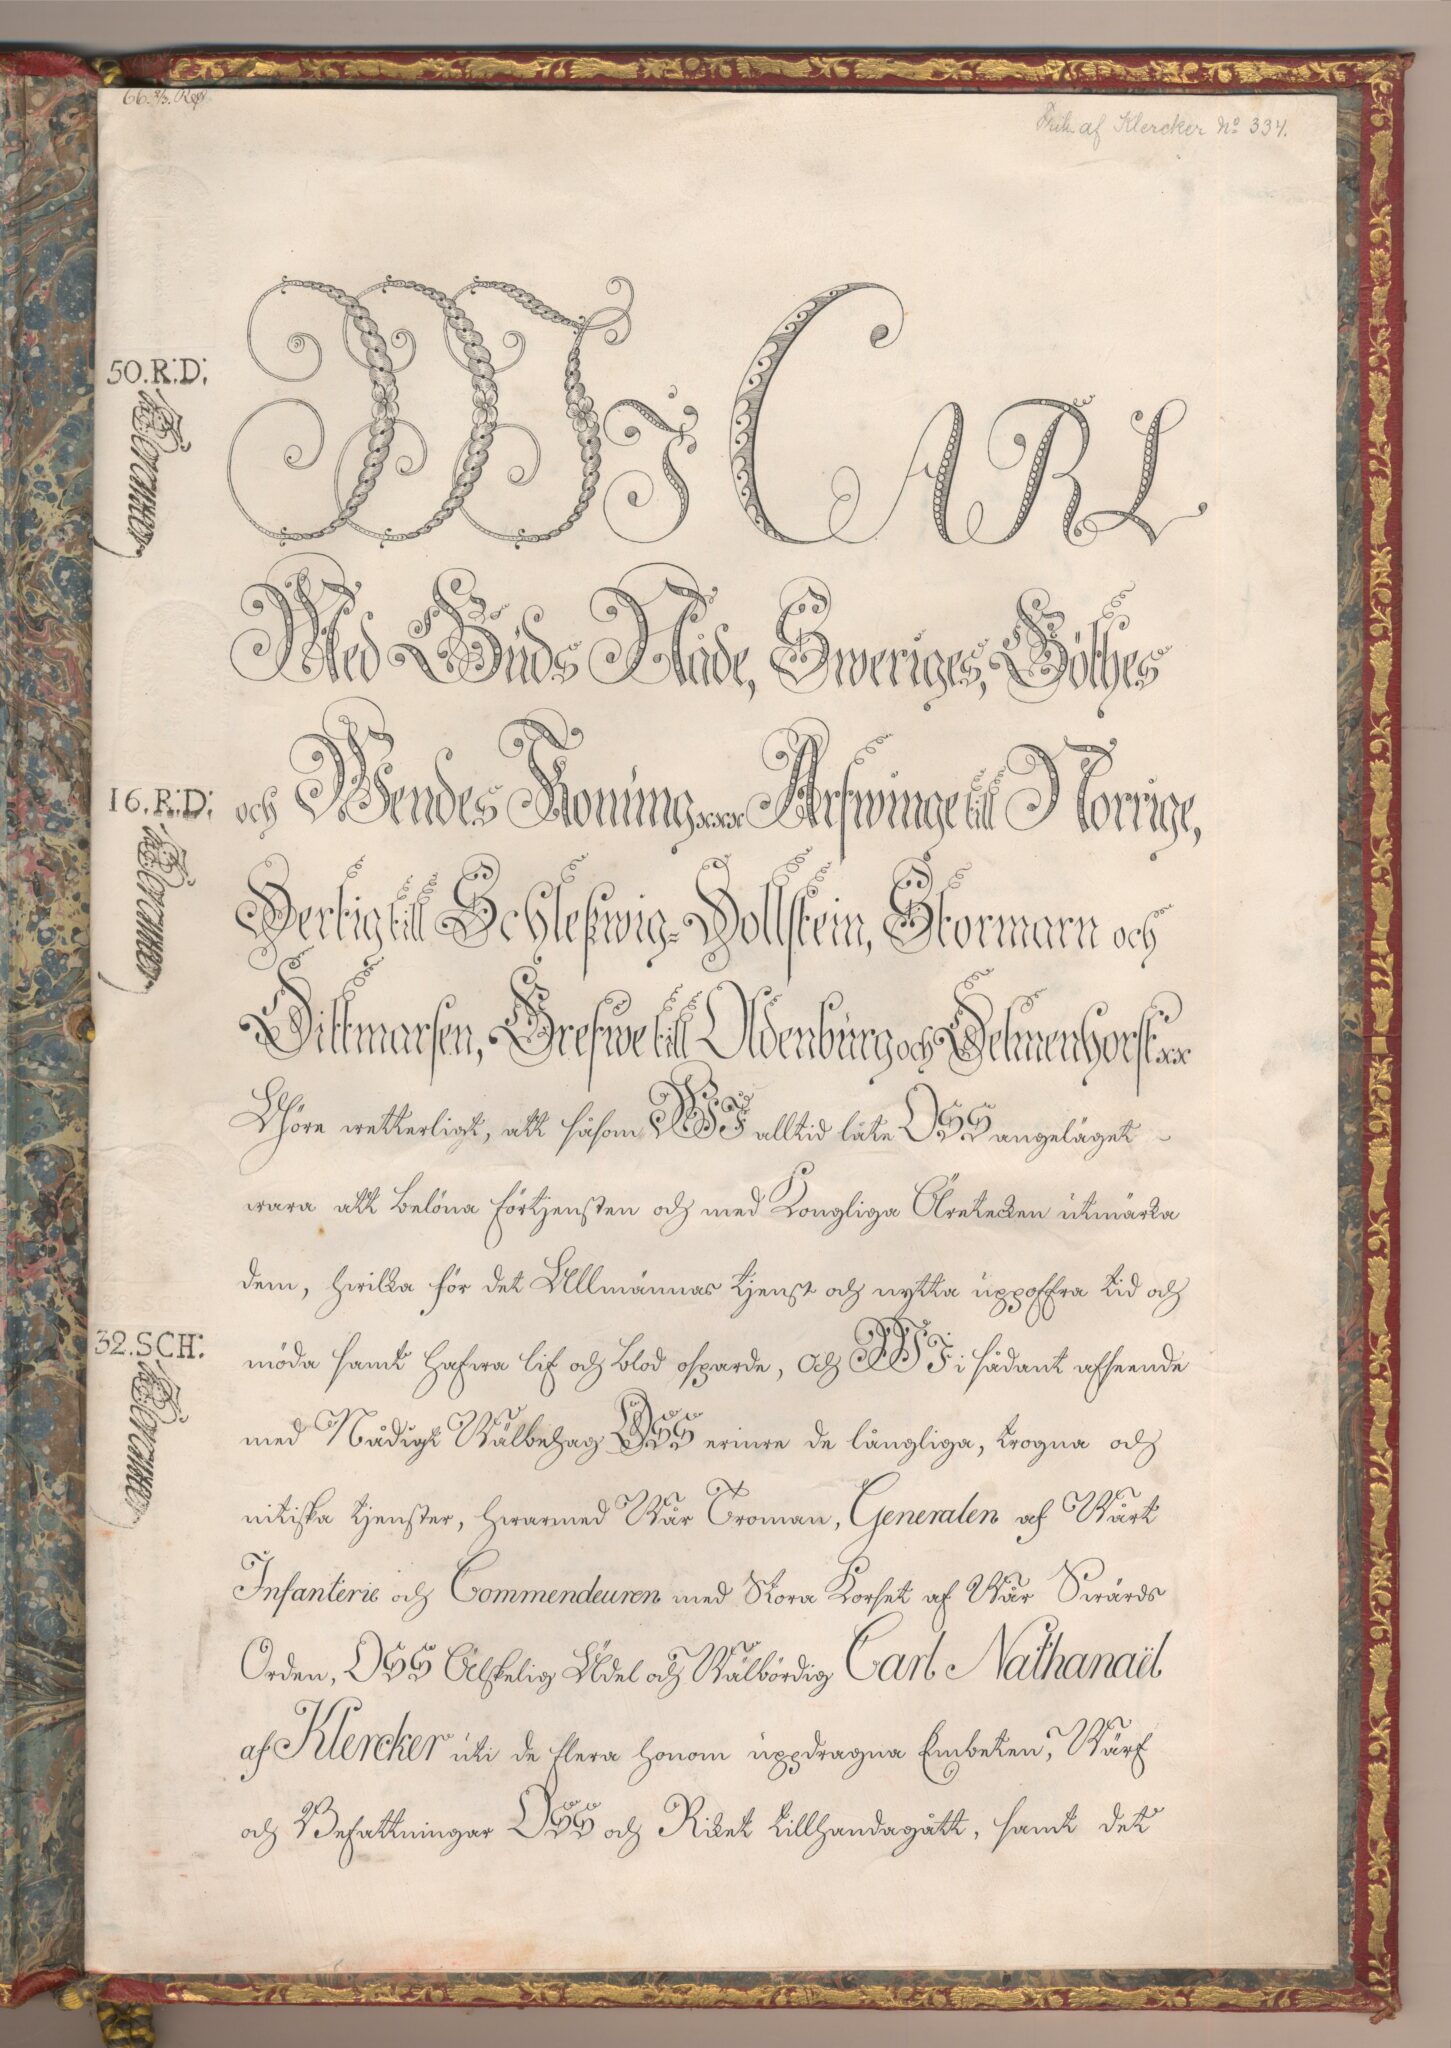 66. 2/3. Rdr
Frih. af Klercker No 334.
WJ CARL
Med Guds Nåde, Sweriges, Göthes
50.R:D:
och Wendes Konung xxx Arfwinge till Norrige,
16.R:D:
Hertig till Schleßwig-Hollstein, Stormarn och
Dittmarsen, Grefwe till Oldenburg och Delmenhorst xx
Göre wetterligt, att såsom WJ alltid låte OSS angeläget
wara att belöna förtjensten och med Kongliga Äretecken utmärka
dem, hwilka för det Allmännas tjenst och nytta uppoffra tid och
32.SCH:
möda samt hafwa lif och blod osparde, och WJ i sådant afseende
med Nådigt Wälbehag OSS erinre de långliga, trogna och
nitiska tjenster, hwarmed Wår Troman, Generalen af Wårt
Infanterie och Commendeuren med Stora Korset af Wår Swärds
Orden, OSS Älskelig Ädel och Wälbördig Carl Nathanaël
af Klercker uti de flera honom uppdragna Embeten, Wärf
och Befattningar OSS och Riket tillhandagått, samt det